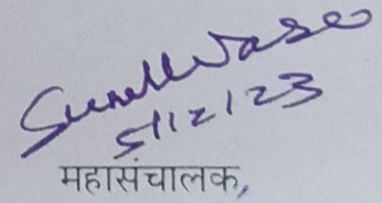 Sunil Wase
5/12/23
महासंचालक,